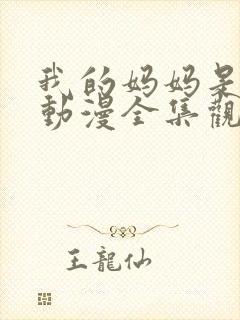 我的妈妈是
動漫全集觀
王龍仙